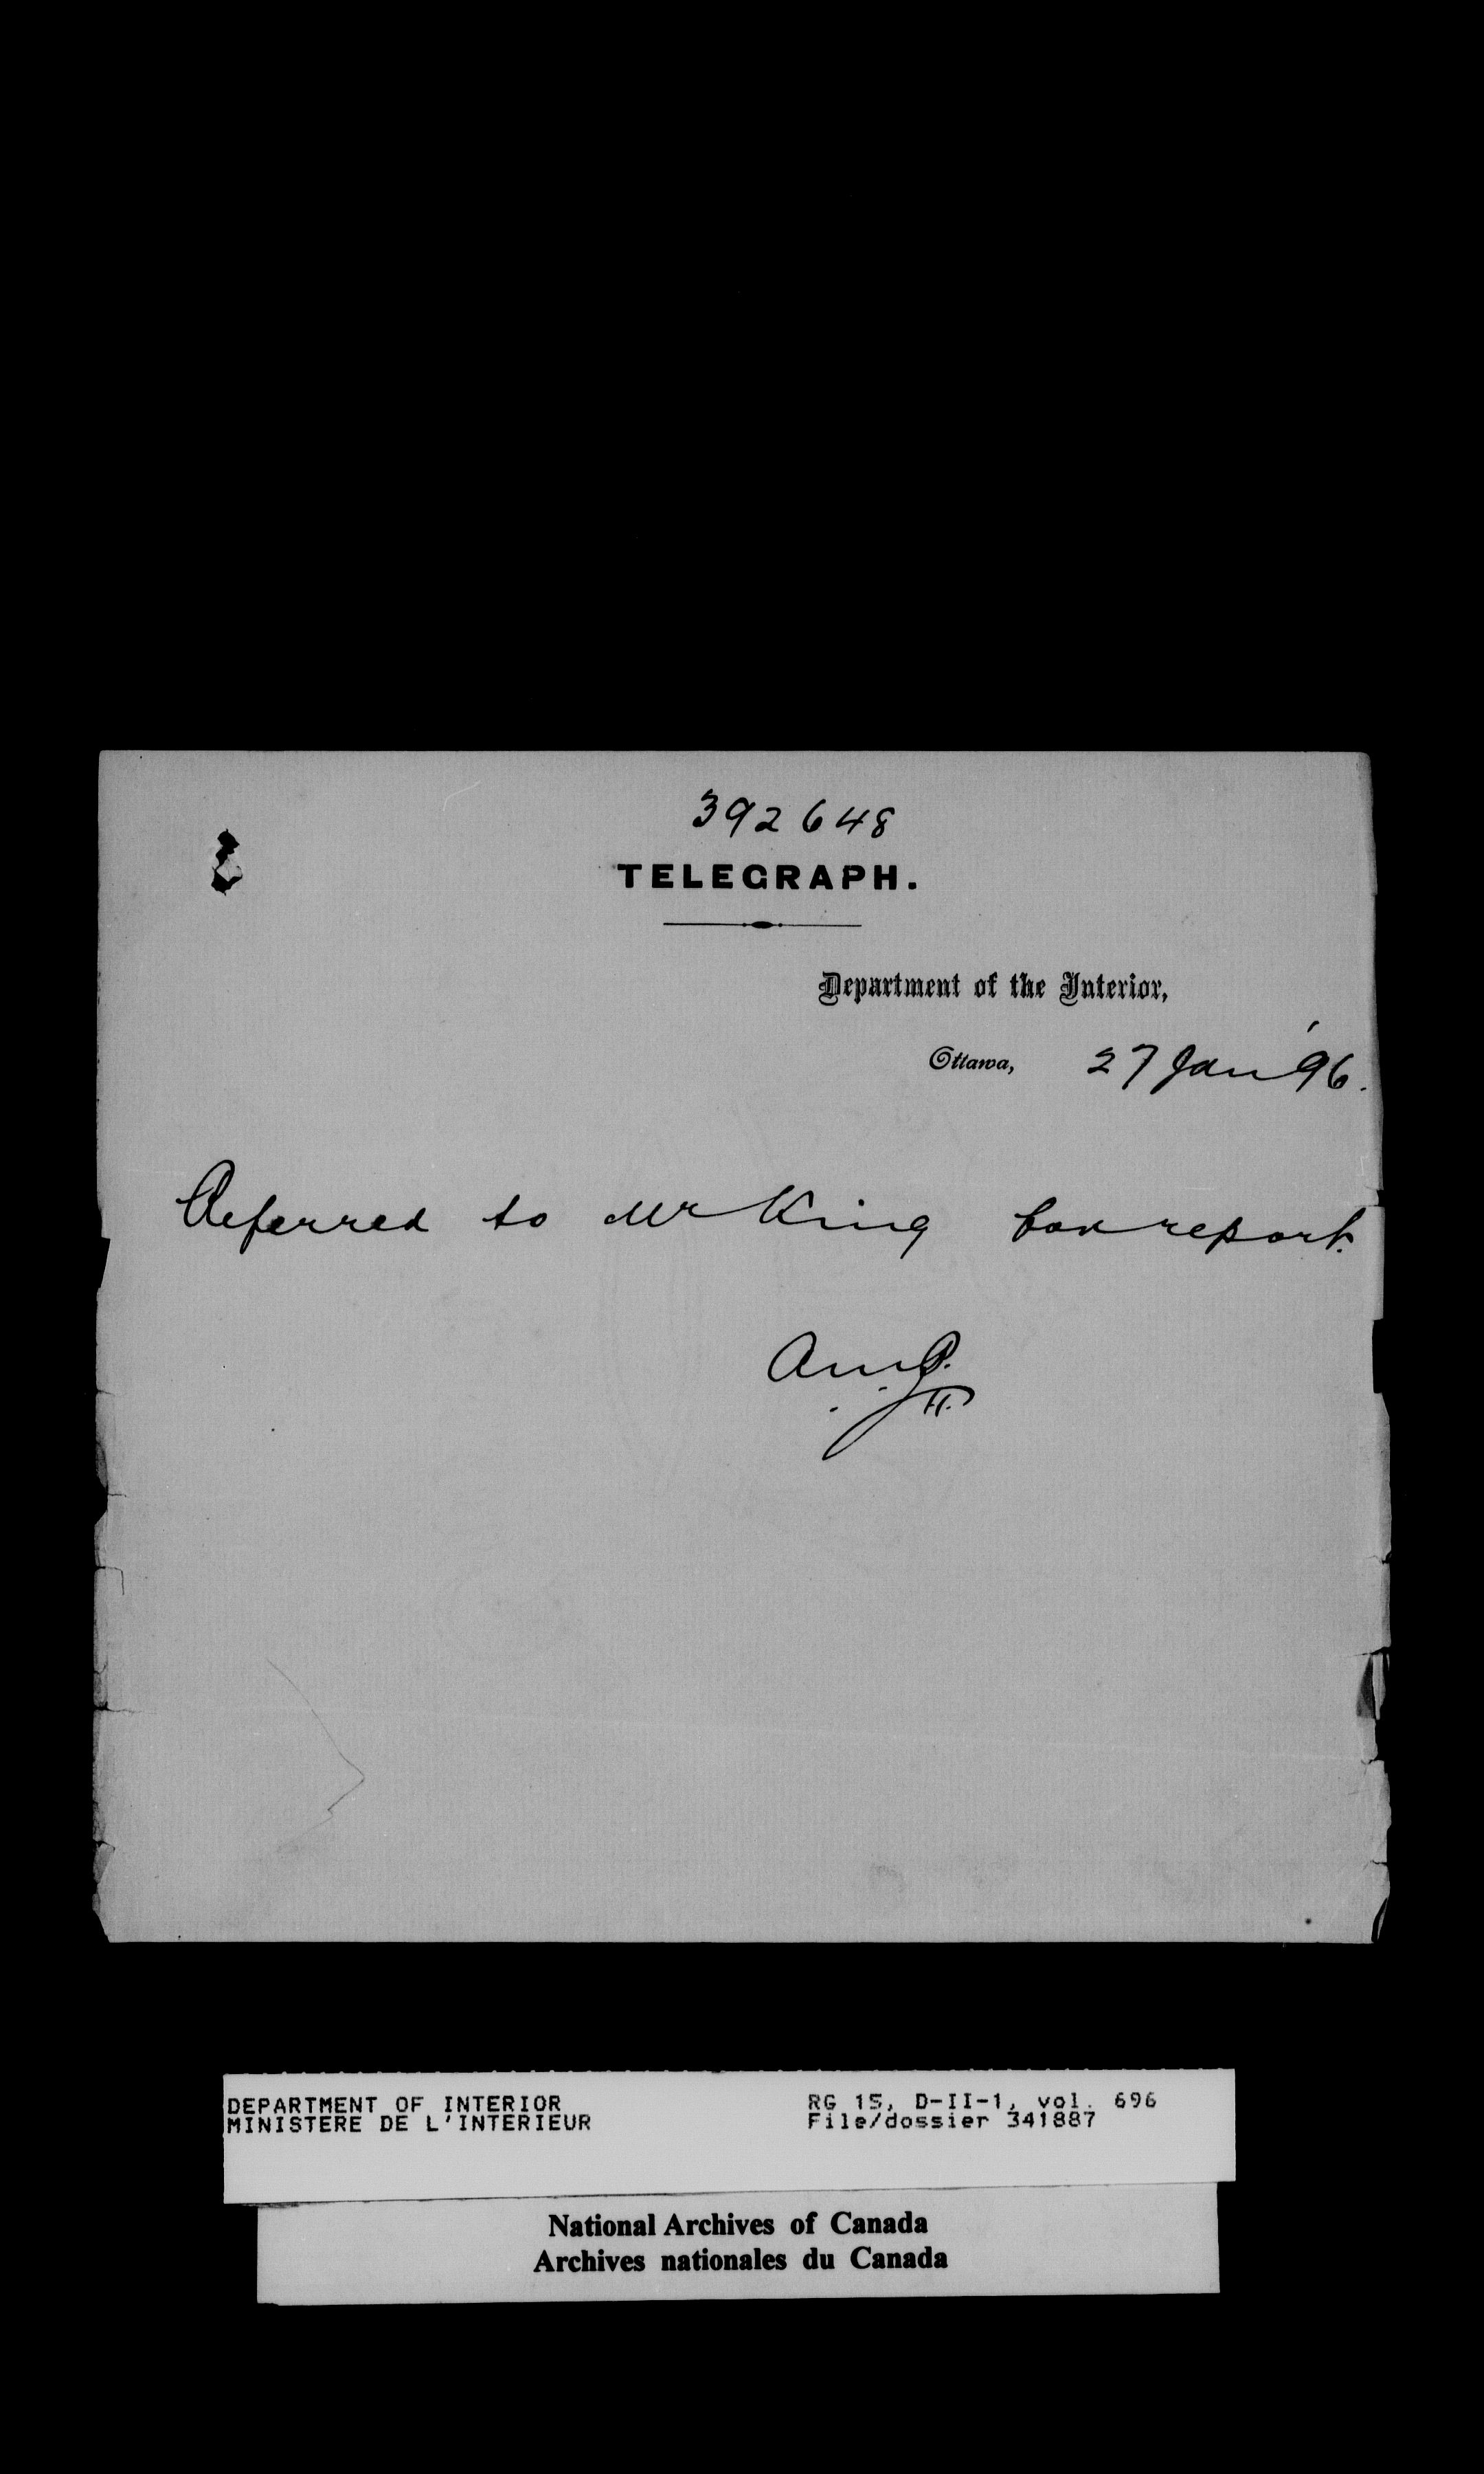 392648
TELEGRAPH.
Department of the Interior,
Ottawa, 27 Jan '96.
Referred to Mr King for report.
DEPARTMENT OF INTERIOR
MINISTERE DE L'INTERIEUR
RG 15, D-II-1, vol. 696
File/dossier 341887
National Archives of Canada
Archives nationales du Canada